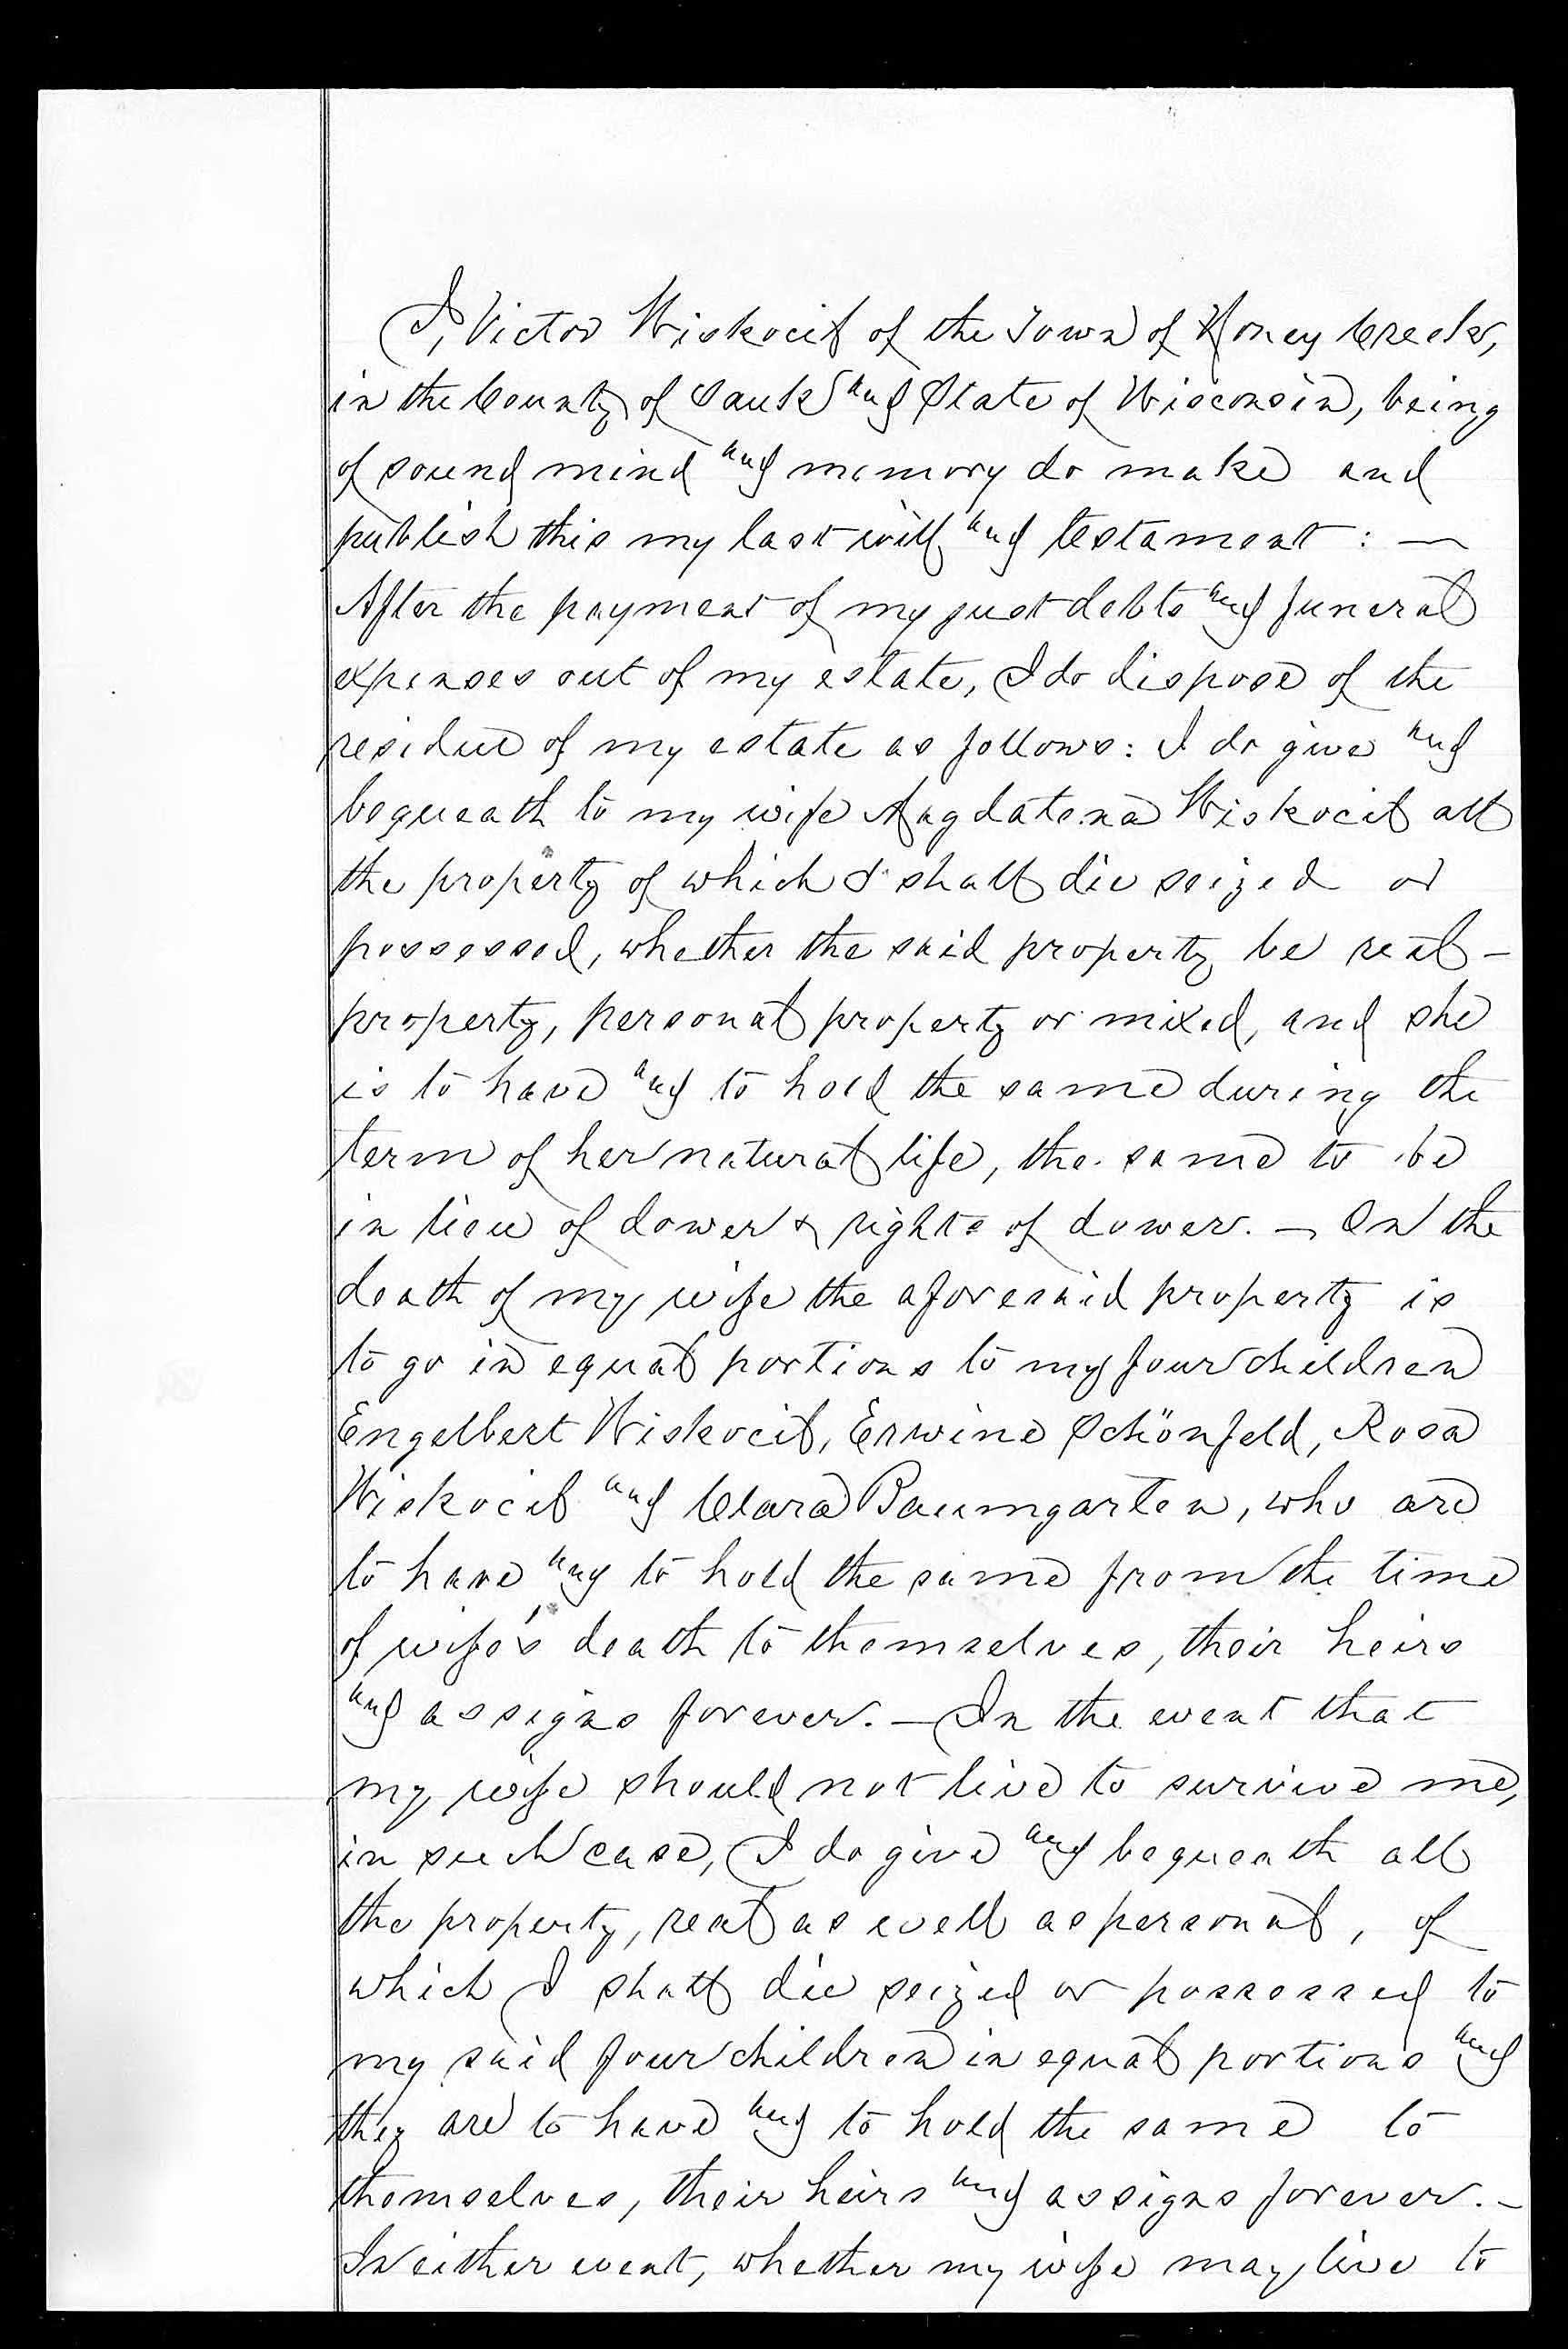 I, Victor Wiskocil of the Town of Honey Creek,
in the County of Sauk and State of Wisconsin, being
of sound mind and memory do make and
publish this my last will and testament : —
After the payment of my just debts and funeral
expenses out of my estate, I do dispose of the
residue of my estate as follows: I do give and
bequeath to my wife Magdalena Wiskocil all
the property of which I shall die seized or
possessed, whether the said property be real –
property, personal property or mixed, and she
is to have and to hold the same during the
term of her natural life, the same to be
in lieu of dower & rights of dower. — On the
death of my wife the aforesaid property is
to go in equal portions to my four children
Engelbert Wiskocil, Erwine Schönfeld, Rosa
Wiskocil and Clara Baumgarten, who are
to have and to hold the same from the time
of wife's death to themselves, their heirs
and assigns forever. — In the event that
my wife should not live to survive me,
in such case, I do give and bequeath all
the property, real as well as personal, of
which I shall die seized or possessed to
my said four children in equal portions and
they are to have and to hold the same to
themselves, their heirs and assigns forever. –
In either event, whether my wife may live to